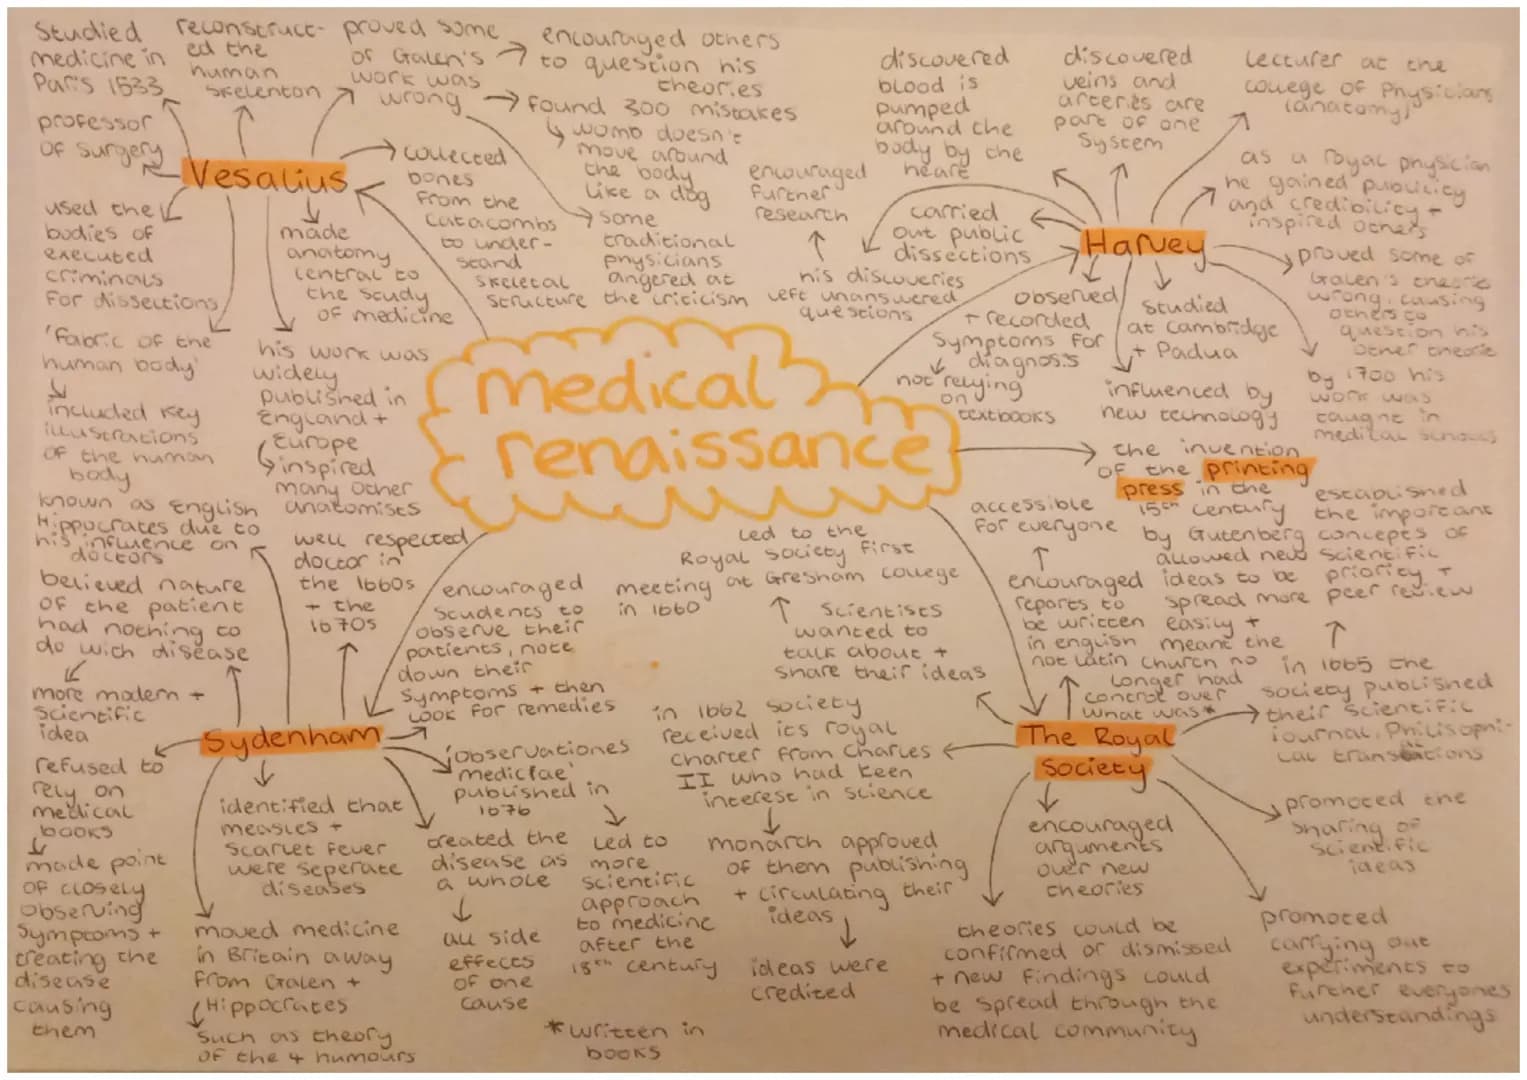 medical
renaissance
Vesalius
Studied
medicine in
Paris 1533
reconstruct-
ed the
human
skelenton
proved some
of Galen's
work was
wrong
encouraged others
to question his
theories
found 300 mistakes
womb doesn't
move around
the body
like a dog
some
traditional
physicians
angered at
the criticism
professor
of surgery
collected
bones
from the
catacombs
to under-
stand
skeletal
structure
used the
bodies of
executed
criminals
for dissections
made
anatomy
central to
the study
of medicine
'Fabric of the
human body'
included key
illustrations
of the human
body
his work was
widely
published in
England +
Europe
inspired
many other
anatomists
Harvey
discovered
blood is
pumped
around the
body by the
heart
discovered
veins and
arteries are
part of one
system
lecturer at the
college of Physicians
(anatomy)
as a royal physician
he gained publicity
and credibility +
inspired others
encouraged
further
research
his discoveries
left unanswered
questions
carried
out public
dissections
observed
+ recorded
symptoms for
diagnosis
not relying
on
textbooks
studied
at Cambridge
+ Padua
influenced by
new technology
proved some of
Galen's theorie
wrong, causing
others to
question his
other theorie
by 1700 his
work was
taught in
medical schools
the invention
of the printing
press in the
15th century
by Gutenberg
allowed new
ideas to be
spread more
easily +
meant the
church no
longer had
control over
what was*
*written in
books
Sydenham
known as English
Hippocrates due to
his influence on
doctors
believed nature
of the patient
had nothing to
do with disease
more modern +
scientific
idea
well respected
doctor in
the 1660s
+ the
1670s
encouraged
students to
observe their
patients, note
down their
symptoms + then
look for remedies
refused to
rely on
medical
books
made point
of closely
observing
symptoms +
treating the
disease
causing
them
identified that
measles +
scarlet fever
were seperate
diseases
moved medicine
in Britain away
from Galen +
Hippocrates
such as theory
of the 4 humours
'observationes
medicae'
published in
1676
led to
more
scientific
approach
to medicine
after the
18th century
created the
disease as
a whole
all side
effects
of one
cause
The Royal
Society
led to the
Royal society first
meeting at Gresham college
in 1660
scientists
wanted to
talk about +
share their ideas
accessible
for everyone
encouraged
reports to
be written
in english
not latin
established
the important
concepts of
scientific
priority +
peer review
in 1665 the
society published
their scientific
journal, Philisophi-
cal transactions
in 1662 society
received its royal
charter from Charles
II who had keen
interest in science
monarch approved
of them publishing
+ circulating their
ideas
ideas were
credited
encouraged
arguments
over new
theories
promoted the
sharing of
scientific
ideas
theories could be
confirmed or dismissed
+ new findings could
be spread through the
medical community
promoted
carrying out
experiments to
further everyones
understandings